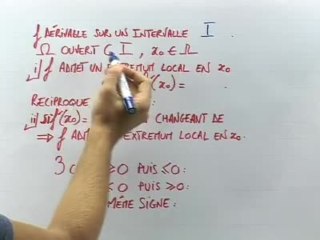 f DÉRIVABLE SUR UN INTERVALLE I .
Ω OUVERT ⊂ I , x₀ ∈ Ω
i) f ADMET UN EXTREMUM LOCAL EN x₀
(x₀) = .
RECIPROQUE
ii) SI f'(x₀) = CHANGEANT DE
⇒ f ADM EXTREMUM LOCAL EN x₀.
3 C ≥0 PUIS ≤0 :
<0 PUIS ≥0 :
MÊME SIGNE :